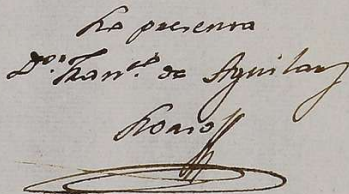 Lo presenta
Dn. Franco. de Aguilar
Romo